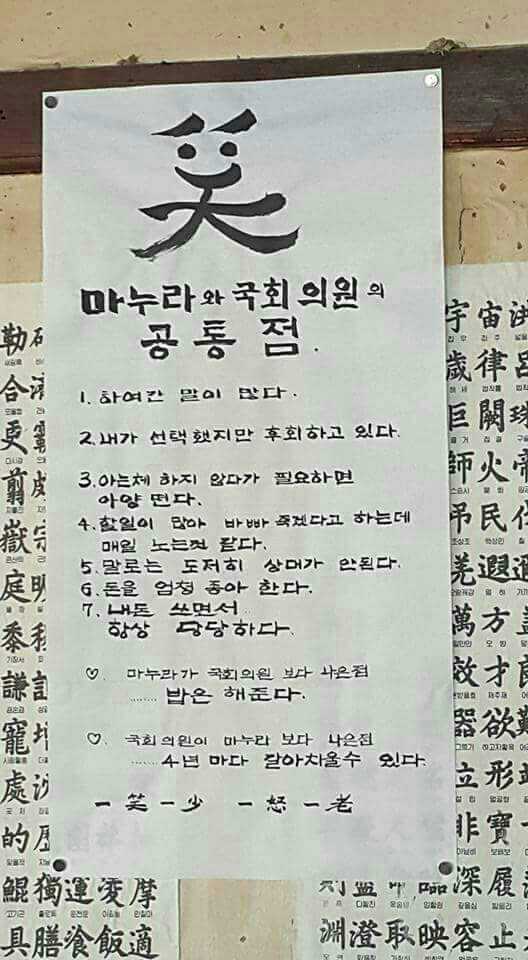 笑
마누라와 국회의원의
공통점.
1. 하여간 말이 많다.
2. 내가 선택했지만 후회하고 있다.
3. 아는체 하지 않다가 필요하면
아양 떤다.
4. 할일이 많아 바빠 죽겠다고 하는데
매일 노는것 같다.
5. 말로는 도저히 상대가 안된다.
6. 돈을 엄청 좋아 한다.
7. 내돈 쓰면서
항상 당당하다.
♡. 마누라가 국회의원 보다 나은점
........ 밥은 해준다.
♡. 국회의원이 마누라 보다 나은점
........ 4년 마다 갈아치울수 있다.
一笑一少 一怒一老
勒
合
更
翦
嶽宗
庭
黍
謙
寵
處
的
鯤獨運凌摩
具膳飡飯適
宇宙洪
歲律呂
巨闕珠
師火帝
弔民伐
羌遐邇
萬方蓋
效才良
器欲難
立形端
非寶
深履
淵澄取映容止